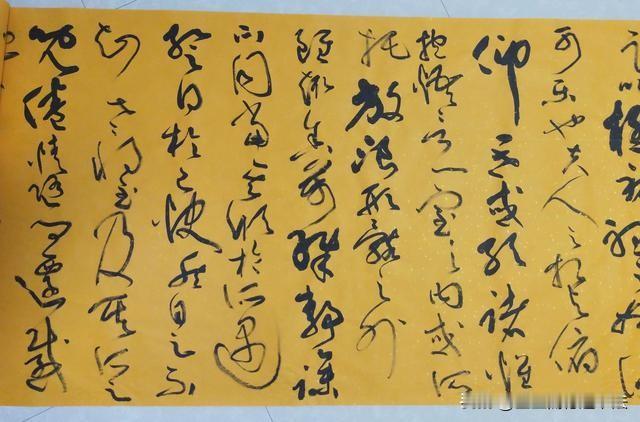 足以極視聽娛信
可樂也夫人之相與俯
仰一世或取諸懷
抱悟言一室之內或所
托放浪形骸之外
雖趣舍萬殊靜躁
不同當其欣於所遇
於己快然自足不
知老之將至及其所之
既倦情隨事遷感